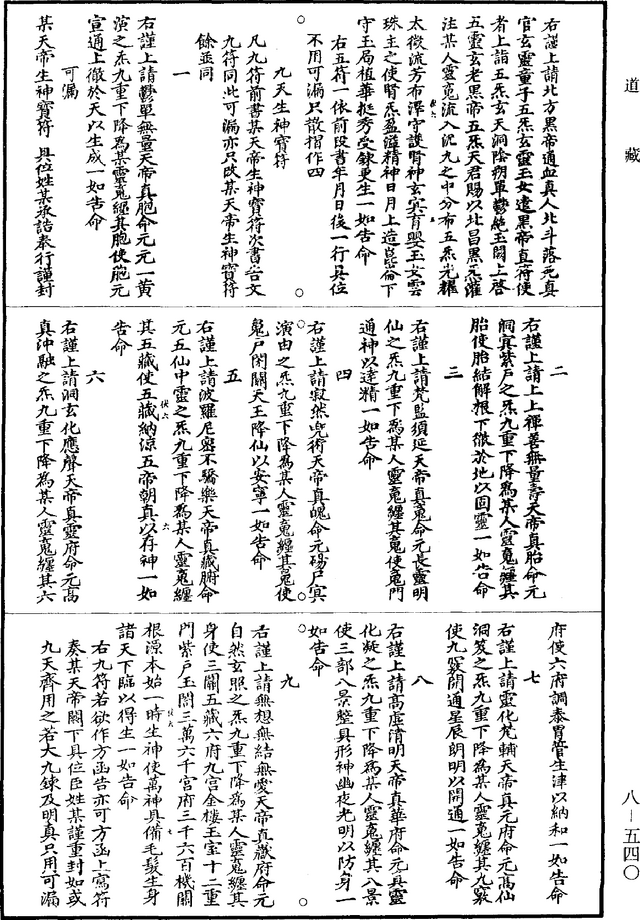 道藏
右謹上請北方黑帝通血真人北斗落死真
官玄靈童子五炁玄靈玉女遣黑帝直符使
者上詣五炁玄天洞陰朔單鬱絕玉闕上啓
五靈玄老黑帝五炁天君賜以北昌黑炁灌
注某人靈竟流入沉九之中分布五炁光耀
太微流芳布澤守護腎神玄冥育嬰玉女雲
珠主之使腎炁盈溢精神日月上造崑崙下
守玉局植華挺秀受鍊更生一如告命
右五符一依前段書年月日後一行具位
不用可漏只散摺作四
九天生神寶符
凡九符前書某天帝生神寶符次書告文
九符同此可漏亦只改某天帝生神寶符
餘並同
一
右謹上請鬱單無量天帝真胞命元元一黃
演之炁九重下降為某靈竟纏其胞使胞元
宣通上徹於天以生成一如告命
可漏
某天帝生神寶符 具位姓某承誥奉行謹封
二
右謹上請上上禪善無量壽天帝真胎命元
洞冥紫戶之炁九重下降為某人靈竟纏其
胎使胎結解根下徹於地以固靈一如告命
三
右謹上請梵監須延天帝真竟命元長靈明
仙之炁九重下為某人靈竟纏其竟使竟門
通神以達精一如告命
四
右謹上請寂然兜術天帝真魄命元碭尸冥
演由之炁九重下降為某人靈竟纏其竟使
竟戶閉關天王降仙以安寧一如告命
五
右謹上請波羅尼密不驕樂天帝真藏腑命
元五仙中靈之炁九重下降為某人靈竟纏
其五藏使五藏納涼五帝朝真以存神一如
告命
六
右謹上請洞玄化應聲天帝真靈府命元高
真沖融之炁九重下降為某人靈竟纏其六
府使六府調泰胃管生津以納和一如告命
七
右謹上請靈化梵輔天帝真元府命元高仙
洞笈之炁九重下降為某人靈竟纏其九竅
使九竅開通星辰朗明以開通一如告命
八
右謹上請高虛清明天帝真華府命元真靈
化凝之炁九重下降為某人靈竟纏其八景
使三部八景整具形神幽夜光明以防身一
如告命
九
右謹上請無想無結無愛天帝真藏府命元
自然玄照之炁九重下降為某人靈竟纏其
身使三關五藏六府九宮金樓玉室十二重
門紫戶玉閤三萬六千宮府三千六百機關
根源本始一時生神使萬神具備毛髮生身
諸天下臨以得生一如告命
右九符若欲作方函告亦可方函上寫符
奏某天帝閣下具位臣姓某謹重封如或
九天齊用之若大九鍊及明真只用可漏
八－五四〇